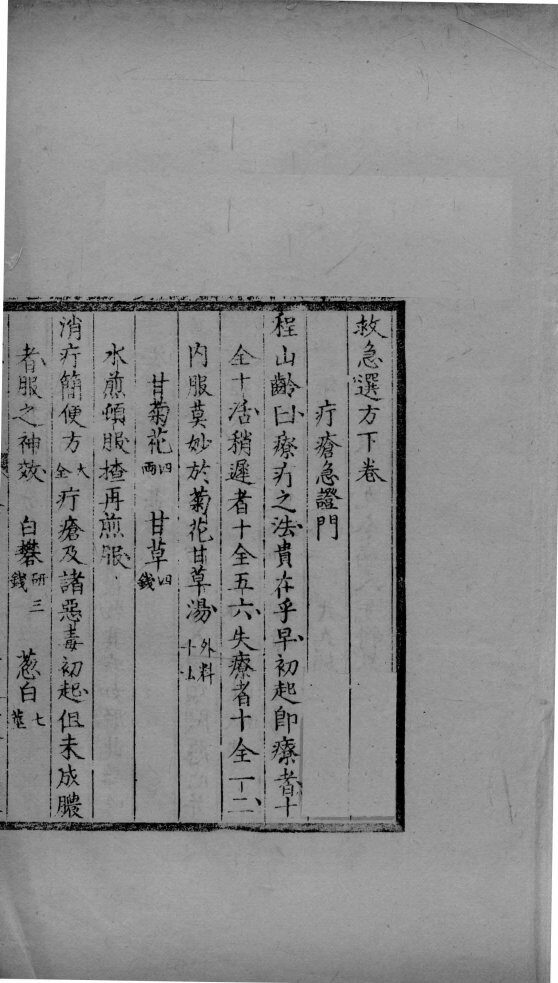 救急選方下卷
疔瘡急證門
程山齡曰療疔之法貴在乎早初起即療者十
全十活稍遲者十全五六失療者十全一二
內服莫妙於菊花甘草湯外科十法
甘菊花四兩 甘草四錢
水煎頓服揸再煎服
消疔簡便方大全疔瘡及諸惡毒初起但未成膿
者服之神效 白礬研三錢 葱白七莖